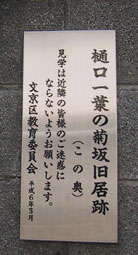 樋口一葉の菊坂旧居跡
（この奥）
見学は近隣の皆様のご迷惑に
ならないようお願いします。
文京区教育委員会
平成6年3月